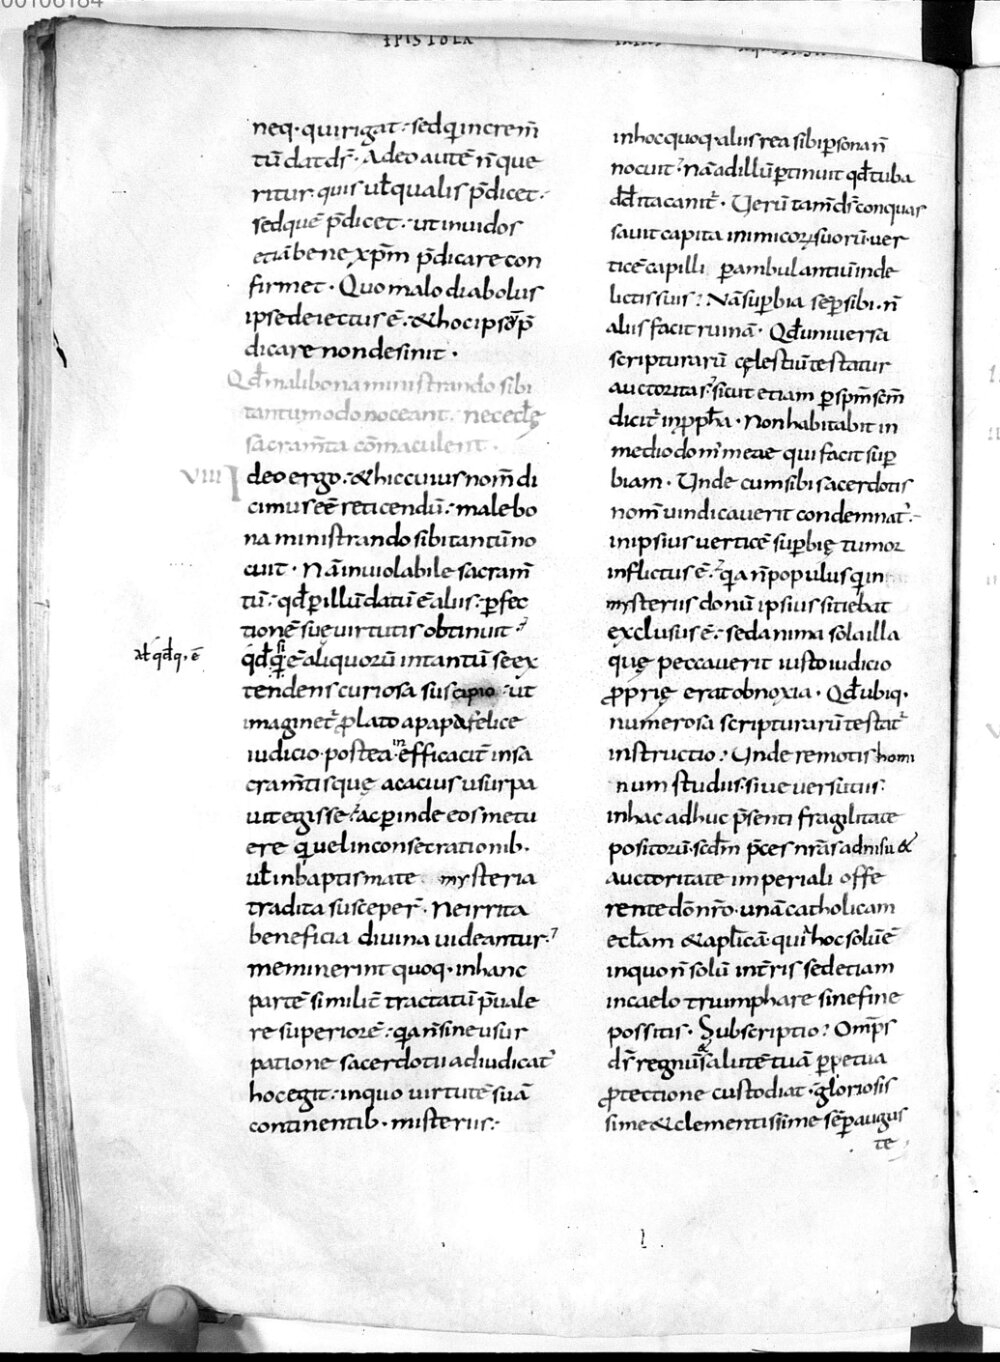 00106184
EPISTOLA
neq· qui rigat· sed qui increm̄
tū dat dr̄· Adeo autē n̄ que
ritur quis ut̄ qualis p̄dicet·
sed quē p̄dicet· ut inuidos
etiā bene xp̄m p̄dicare con
firmet· Quo malo diabolus
ipse deiectus ē· & hoc ipsō p̄
dicare non desinit·
Qd̄ mali bona ministrando sibi
tantummodo noceant· nec ecl̄ę
sacram̄ta cōmaculent·
VIII Ideo ergo· & hic cuius nom̄ di
cimus eē reticendū· male bo
na ministrando sibi tantū no
cuit· Nā inuiolabile sacram̄
tū· qd̄ p̄ illū datū ē aliis· p̄fec
tionē suę uirtutis obtinuit·
at̄ qd̄q· ē
qd̄ si q̄ ē aliquorū in tantū se ex
tendens curiosa suscipio· ut
imaginet̄ p̄lato a papa felice
iudicio· postea in efficacit̄ in sa
cram̄tis quę acacius usurpa
uit egisse· ac p̄inde eos metu
ere qui uel in consecrationib·
ut̄ in baptismate mysteria
tradita susceper̄· Ne irrita
beneficia diuina uideantur·
meminerint quoq· in hanc
partē similit̄ tractatū p̄uale
re superiorē· q̄a n̄ sine usur
patione sacerdotii adiudicat̄
hoc egit· in quo uirtutē suā
continentib· misteriis·
in hoc quoq· aliis rea sibi p̄sona n̄
nocuit· Nā ad illū p̄tinuit qd̄ tuba
dd̄ ita canit̄· Uerū tam̄ dr̄ conquas
sauit capita inimicoꝝ suorū· uer
ticē capilli p̄ambulantiū in de
lictis suis· Nā sup̄bia sēp̄ sibi· n̄
aliis facit ruinā· Qd̄ uniuersa
scripturarū cęlestiū testatur
auctoritas· sicut etiam p̄ sp̄m sc̄m
dicit̄ in pp̄h̄a· Non habitabit in
medio dom̄ meae qui facit sup̄
biam· Unde cum sibi sacerdotis
nom̄ uindicauerit condemnat̄·
in ipsius uerticē sup̄bię tumor
inflictus ē· q̄a n̄ populus qui in
mysteriis donū ipsius sitiebat
exclusus ē· sed anima sola illa
quę peccauerit iusto iudicio
p̄prię erat obnoxia· Qd̄ ubiq·
numerosa scripturarū testat̄
instructio· Unde remotis homi
num studiis siue uersutiis·
in hac adhuc p̄senti fragilitate
positorū· scdm̄ p̄ces nr̄as adnisu &
auctoritate imperiali offe
rente dō nr̄o· unā catholicam
ecl̄am & apl̄icā· qui hoc solū ē
in quo n̄ solū in tr̄is sed etiam
in caelo triumphare sine fine
possitis· Subscriptio· Omp̄s
dr̄ regnū & salutē tuā p̄petua
p̄tectione custodiat· gloriosis
sime & clementissime sēp̄ augus
te